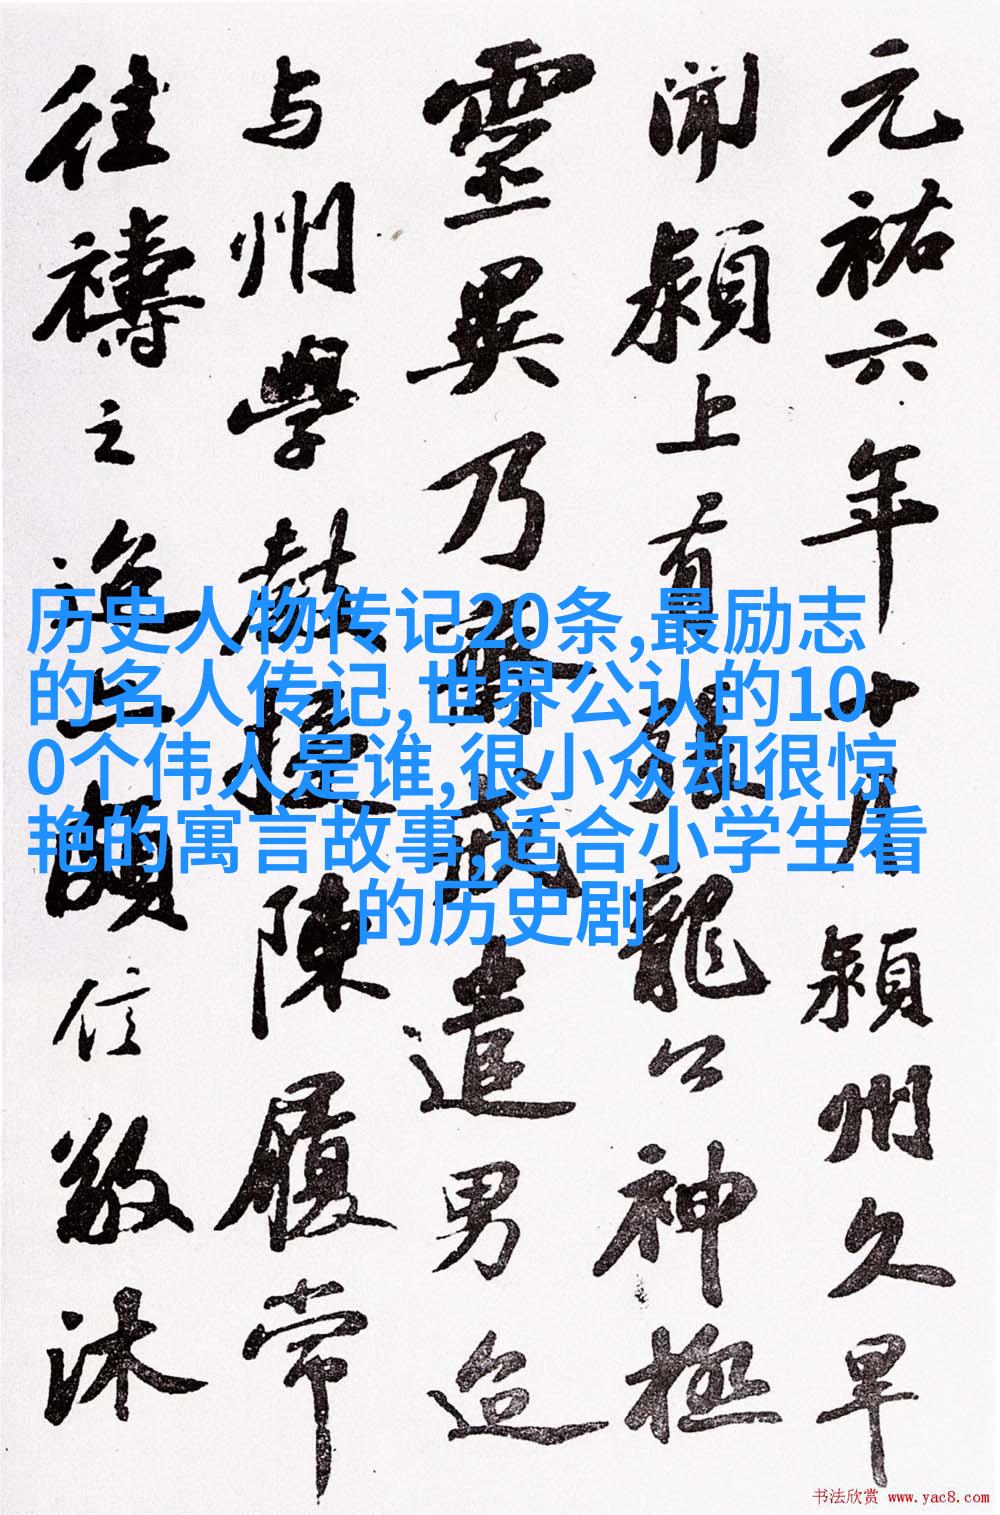 元祐六年十月潁州久旱
聞潁上有張龍公神極
靈異乃齋戒遣男迨
与州學教授陳履常
往禱之迨亦頗信敬沐
历史人物传记20条,最励志
的名人传记,世界公认的10
0个伟人是谁,很小众却很惊
艳的寓言故事,适合小学生看
的历史剧
书法欣赏 www.yac8.com